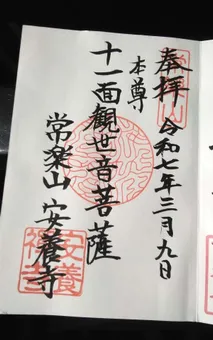 奉拝 令和七年三月九日
本尊
十一面觀世音菩薩
常楽山 安養寺